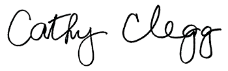 Cathy Clegg